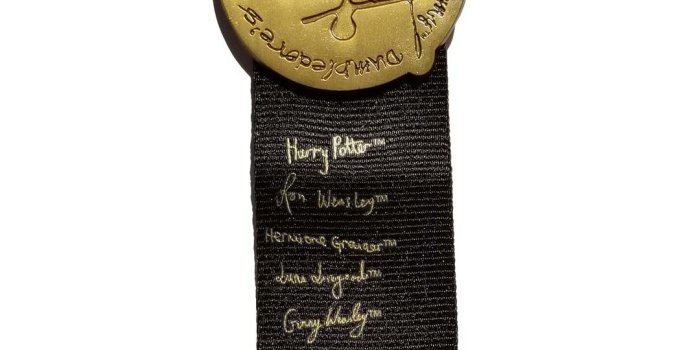 Dumbledore's
Army™
Harry Potter™
Ron Weasley™
Hermione Granger™
Luna Lovegood™
Ginny Weasley™